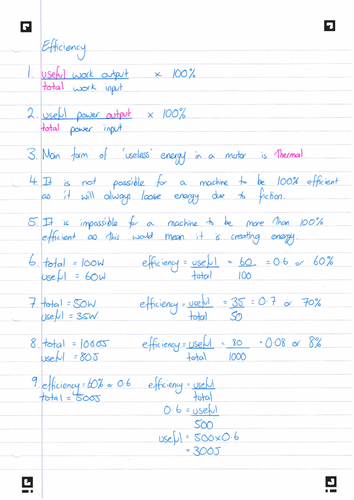 Efficiency
1. useful work output × 100%
total work input
2. useful power output × 100%
total power input
3. Main form of 'useless' energy in a motor is Thermal
4. It is not possible for a machine to be 100% efficient
as it will always loose energy due to friction.
5. It is impossible for a machine to be more than 100%
efficient as this would mean it is creating energy.
6. total = 100W efficiency = useful = 60 = 0.6 or 60%
useful = 60W total 100
7. total = 50W efficiency = useful = 35 = 0.7 or 70%
useful = 35W total 50
8. total = 1000J efficiency = useful = 80 = 0.08 or 8%
useful = 80J total 1000
9. efficiency = 60% or 0.6 efficiency = useful
total = 500J total
0.6 = useful
500
useful = 500×0.6
= 300J